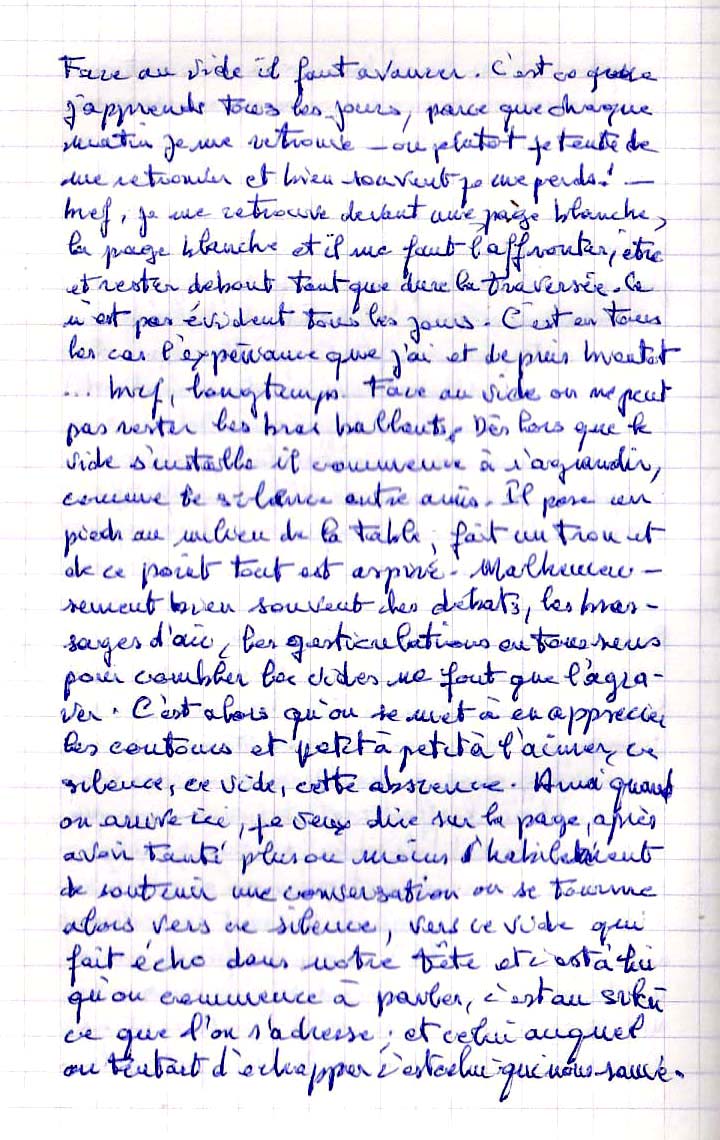 Face au vide il faut avancer. C'est ce que
j'apprends tous les jours, parce que chaque
matin je me retrouve – ou plutôt je tente de
me retrouver et bien souvent je me perds! –
bref, je me retrouve devant une page blanche,
la page blanche et il me faut l'affronter, être
et rester debout tant que dure la traversée. Ce
n'est pas évident tous les jours. C'est en tous
les cas l'expérience que j'ai et depuis bientôt
... bref, longtemps. Face au vide on ne peut
pas rester les bras ballants. Dès lors que le
vide s'installe il commence à s'agrandir,
comme le silence entre amis. Il pose un
pied au milieu de la table, fait un trou et
de ce point tout est aspiré. Malheureu-
sement bien souvent les débats, les bras-
sages d'air, les gesticulations en tous sens
pour combler les vides ne font que l'aggra-
ver. C'est alors qu'on se met à en apprécier
les contours et petit à petit à l'aimer, ce
silence, ce vide, cette absence. Ainsi quand
on arrive ici, je veux dire sur la page, après
avoir tenté plus ou moins habilement
de soutenir une conversation on se tourne
alors vers ce silence, vers ce vide qui
fait écho dans notre tête et c'est à lui
qu'on commence à parler, c'est au silen
ce que l'on s'adresse; et celui auquel
on tentait d'échapper c'est celui qui nous sauve.